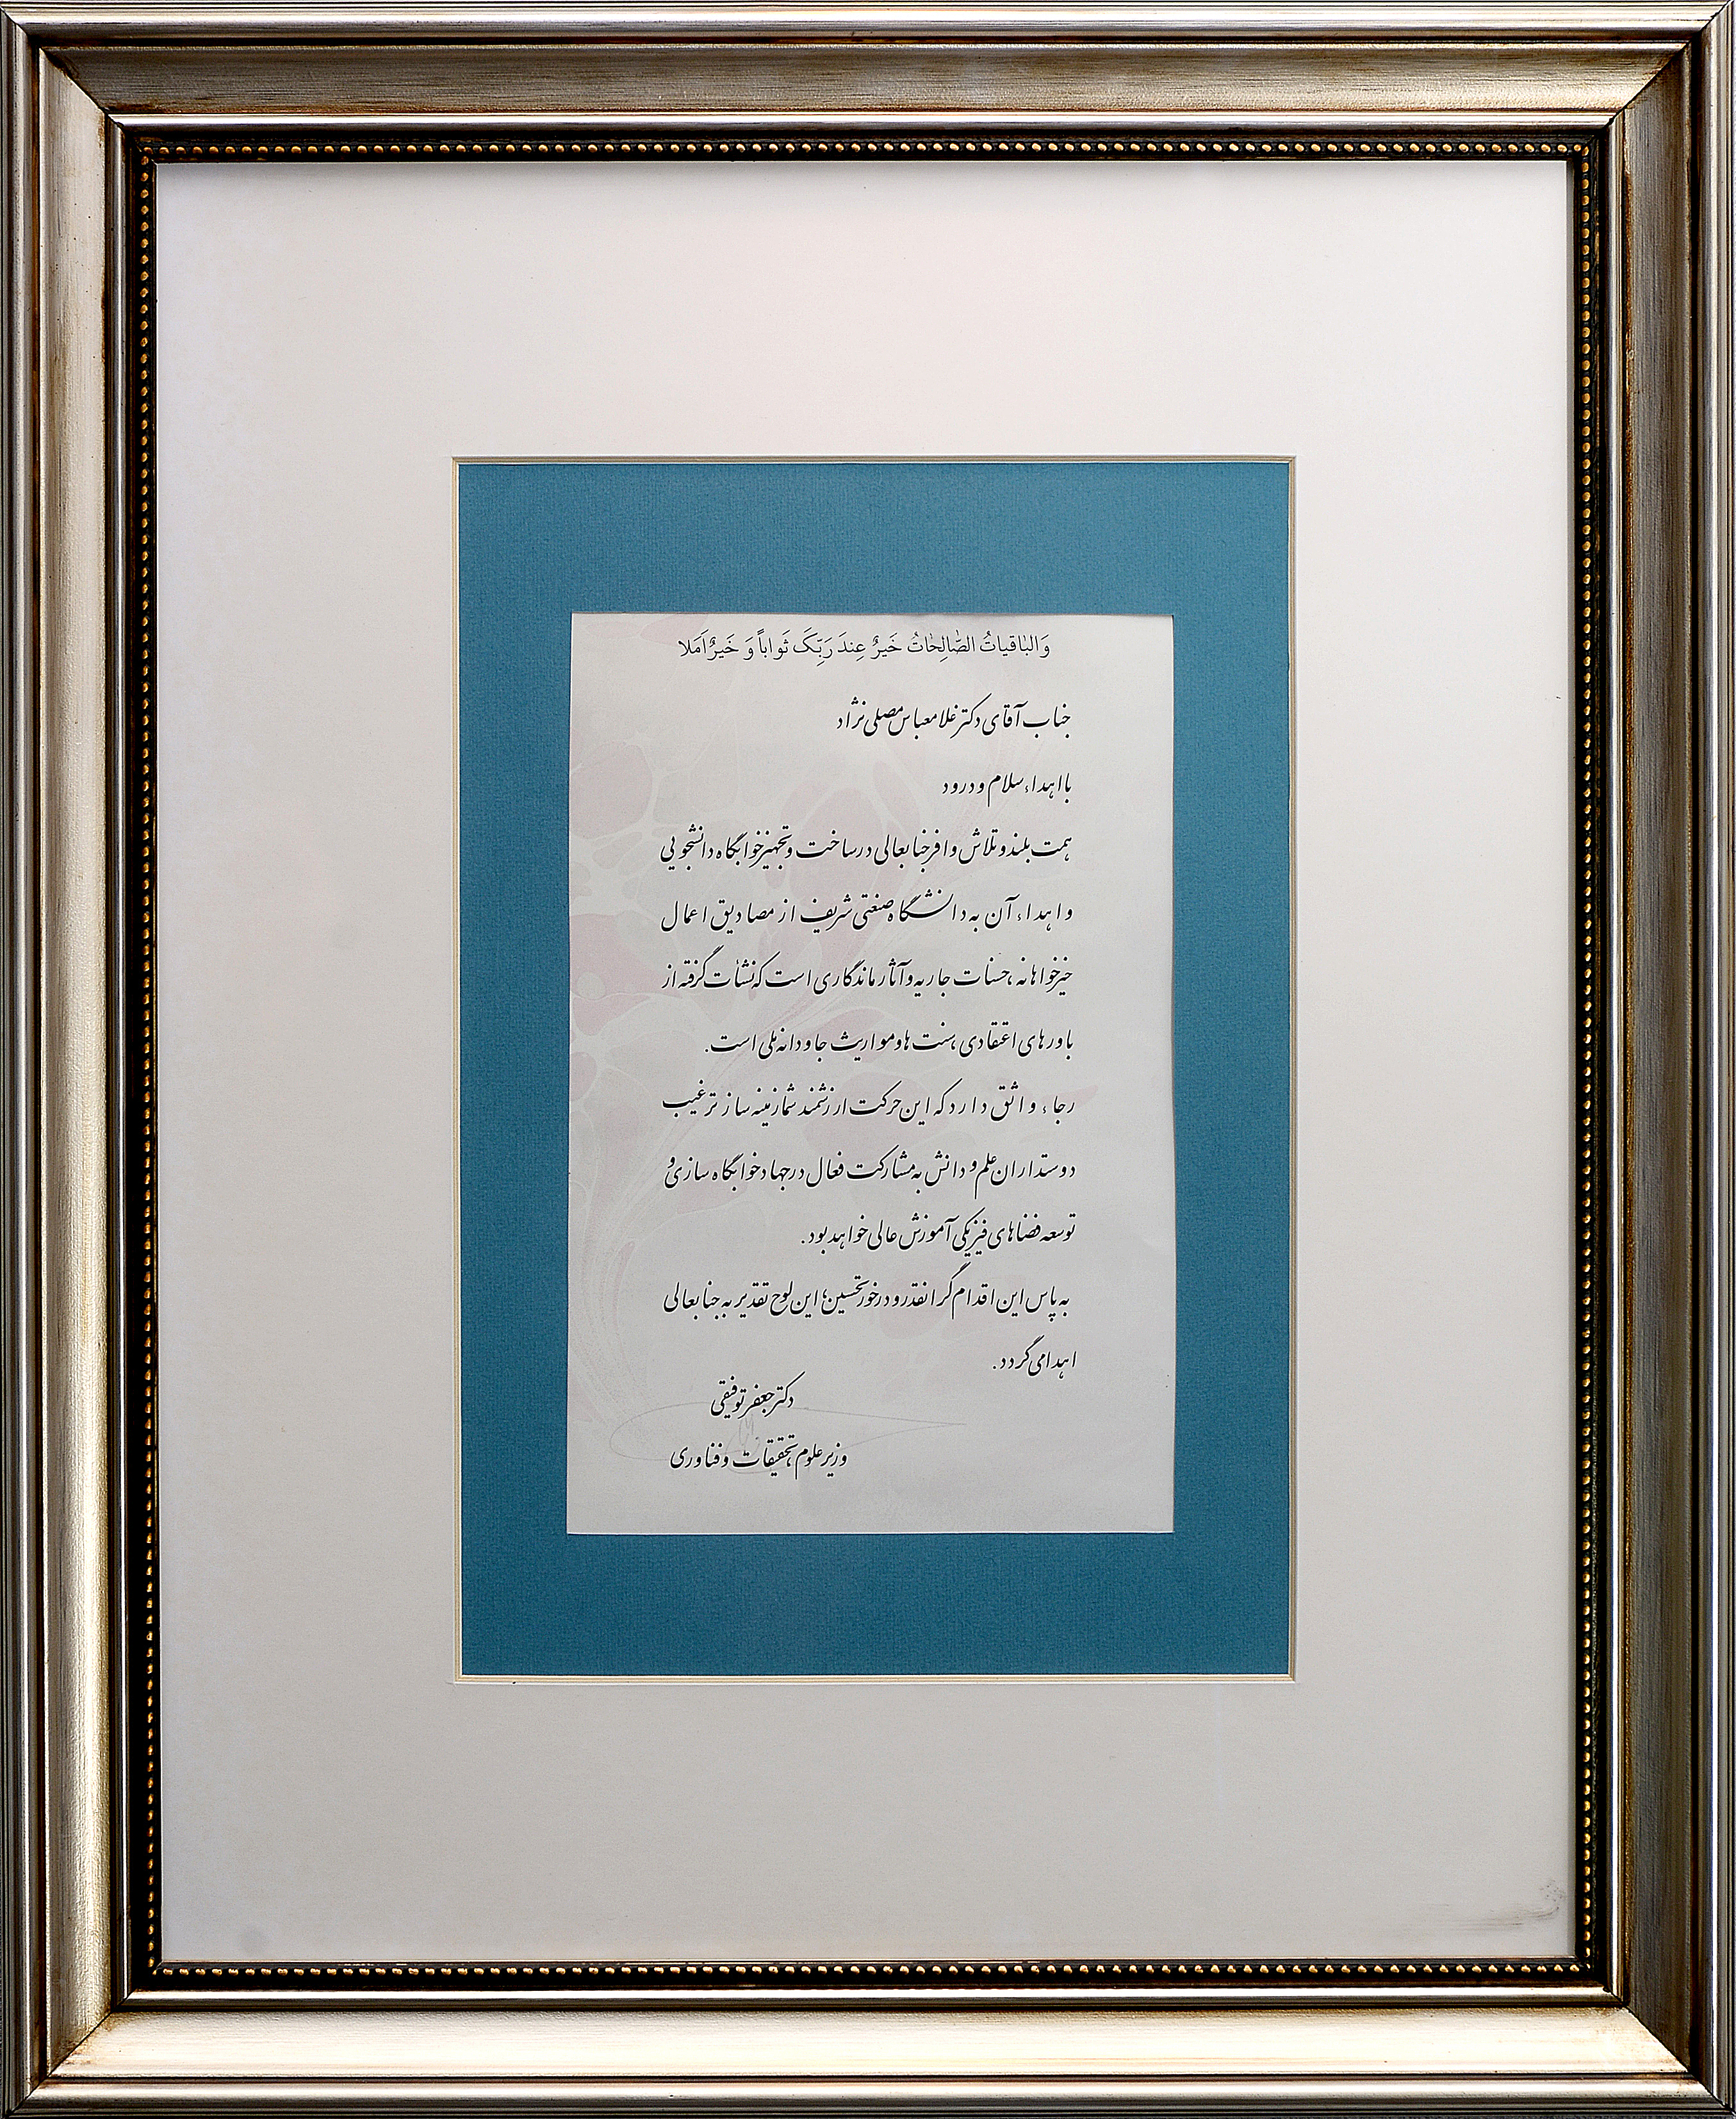 وَالبٰاقیاتُ الصّٰالِحٰاتُ خَیرٌ عِندَ رَبِّکَ ثَواباً وَ خَیرٌ اَمَلا
جناب آقای دکتر غلامعباس مصلی نژاد
با اهداء سلام و درود
همت بلند و تلاش وافر جنابعالی در ساخت و تجهیز خوابگاه دانشجویی
و اهداء آن به دانشگاه صنعتی شریف از مصادیق اعمال
خیرخواهانه، حسنات جاریه و آثار ماندگاری است که نشأت گرفته از
باورهای اعتقادی، سنت ها و مواریث جاودانه ملی است.
رجاء واثق دارد که این حرکت ارزشمند شما زمینه ساز ترغیب
دوستداران علم و دانش به مشارکت فعال در جهاد خوابگاه سازی و
توسعه فضاهای فیزیکی آموزش عالی خواهد بود.
به پاس این اقدام گرانقدر و درخور تحسین؛ این لوح تقدیر به جنابعالی
اهدا می گردد.
دکتر جعفر توفیقی
وزیر علوم، تحقیقات و فناوری